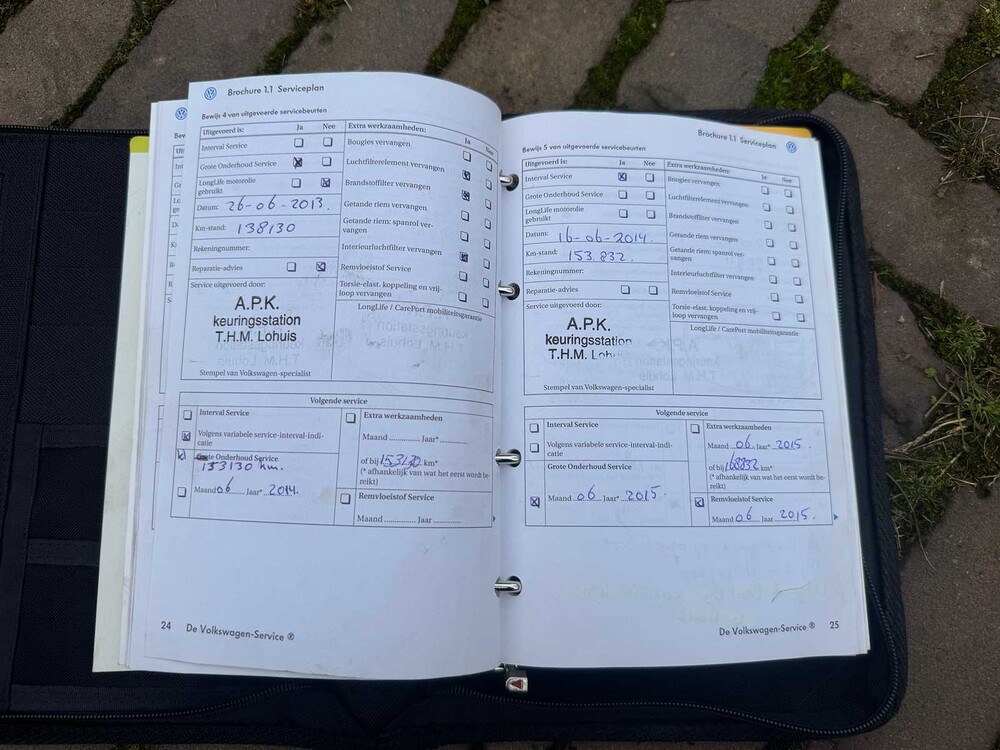 Brochure 1.1 Serviceplan
Bewijs 4 van uitgevoerde servicebeurten
Uitgevoerd is: Ja Nee
Interval Service
Grote Onderhoud Service
LongLife motorolie
gebruikt
Datum: 26-06-2013.
Km-stand: 138130
Rekeningnummer:
Reparatie-advies
Service uitgevoerd door:
A.P.K.
keuringsstation
T.H.M. Lohuis
Stempel van Volkswagen-specialist
Extra werkzaamheden:
Ja Nee
Bougies vervangen
Luchtfilterelement vervangen
Brandstoffilter vervangen
Getande riem vervangen
Getande riem: spanrol ver-
vangen
Interieurluchtfilter vervangen
Remvloeistof Service
Torsie-elast. koppeling en vrij-
loop vervangen
LongLife / CarePort mobiliteitsgarantie
Volgende service
Interval Service
Volgens variabele service-interval-indi-
catie
Grote Onderhoud Service
153130 km.
Maand 06 Jaar* 2014.
Extra werkzaamheden
Maand Jaar*
of bij 153130 km*
(* afhankelijk van wat het eerst wordt be-
reikt)
Remvloeistof Service
Maand Jaar
24 De Volkswagen-Service ®
Brochure 1.1 Serviceplan
Bewijs 5 van uitgevoerde servicebeurten
Uitgevoerd is: Ja Nee
Interval Service
Grote Onderhoud Service
LongLife motorolie
gebruikt
Datum: 16-06-2014.
Km-stand: 153.832.
Rekeningnummer:
Reparatie-advies
Service uitgevoerd door:
A.P.K.
keuringsstation
T.H.M.
Stempel van Volkswagen-specialist
Extra werkzaamheden:
Ja Nee
Bougies vervangen
Luchtfilterelement vervangen
Brandstoffilter vervangen
Getande riem vervangen
Getande riem: spanrol ver-
vangen
Interieurluchtfilter vervangen
Remvloeistof Service
Torsie-elast. koppeling en vrij-
loop vervangen
LongLife / CarePort mobiliteitsgarantie
Volgende service
Interval Service
Volgens variabele service-interval-indi-
catie
Grote Onderhoud Service
Maand 06 Jaar* 2015.
Extra werkzaamheden
Maand 06 Jaar* 2015
of bij 168832 km*
(* afhankelijk van wat het eerst wordt be-
reikt)
Remvloeistof Service
Maand 06 Jaar 2015.
De Volkswagen-Service ® 25